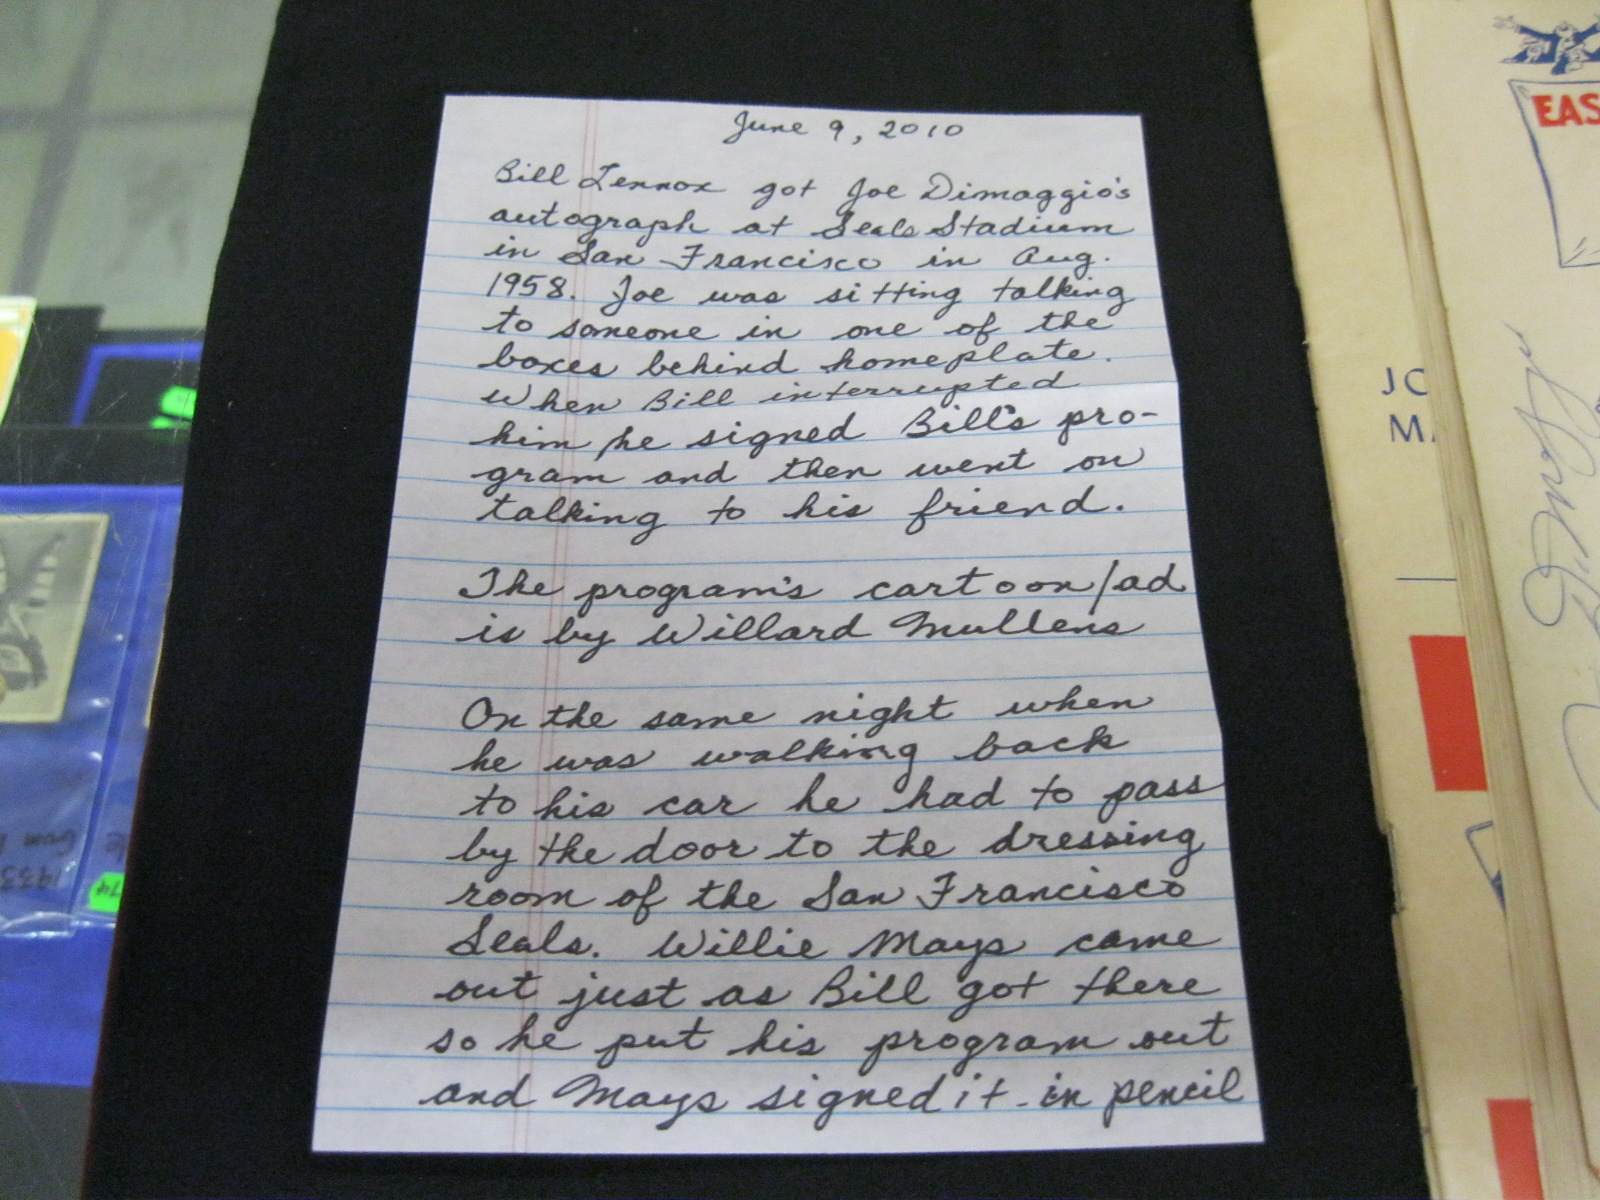 June 9, 2010
Bill Lennox got Joe Dimaggio's
autograph at Seals Stadium
in San Francisco in Aug.
1958. Joe was sitting talking
to someone in one of the
boxes behind homeplate.
When Bill interrupted
him he signed Bill's pro-
gram and then went on
talking to his friend.
The program's cartoon/ad
is by Willard Mullens
On the same night when
he was walking back
to his car he had to pass
by the door to the dressing
room of the San Francisco
Seals. Willie Mays came
out just as Bill got there
so he put his program out
and Mays signed it - in pencil
EAS
JO
MA
1933
74